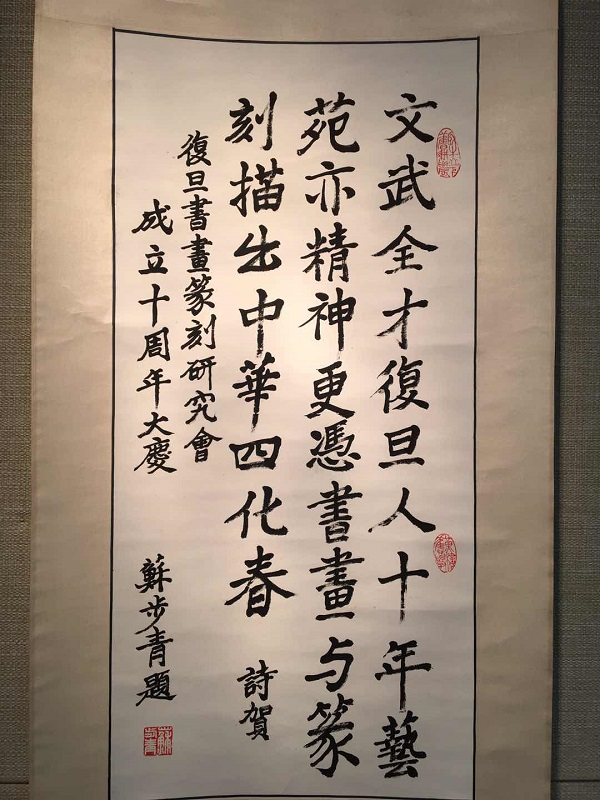 文武全才復旦人十年藝
苑亦精神更憑書畫与篆
刻描出中華四化春 詩賀
復旦書畫篆刻研究會
成立十周年大慶
蘇步青題